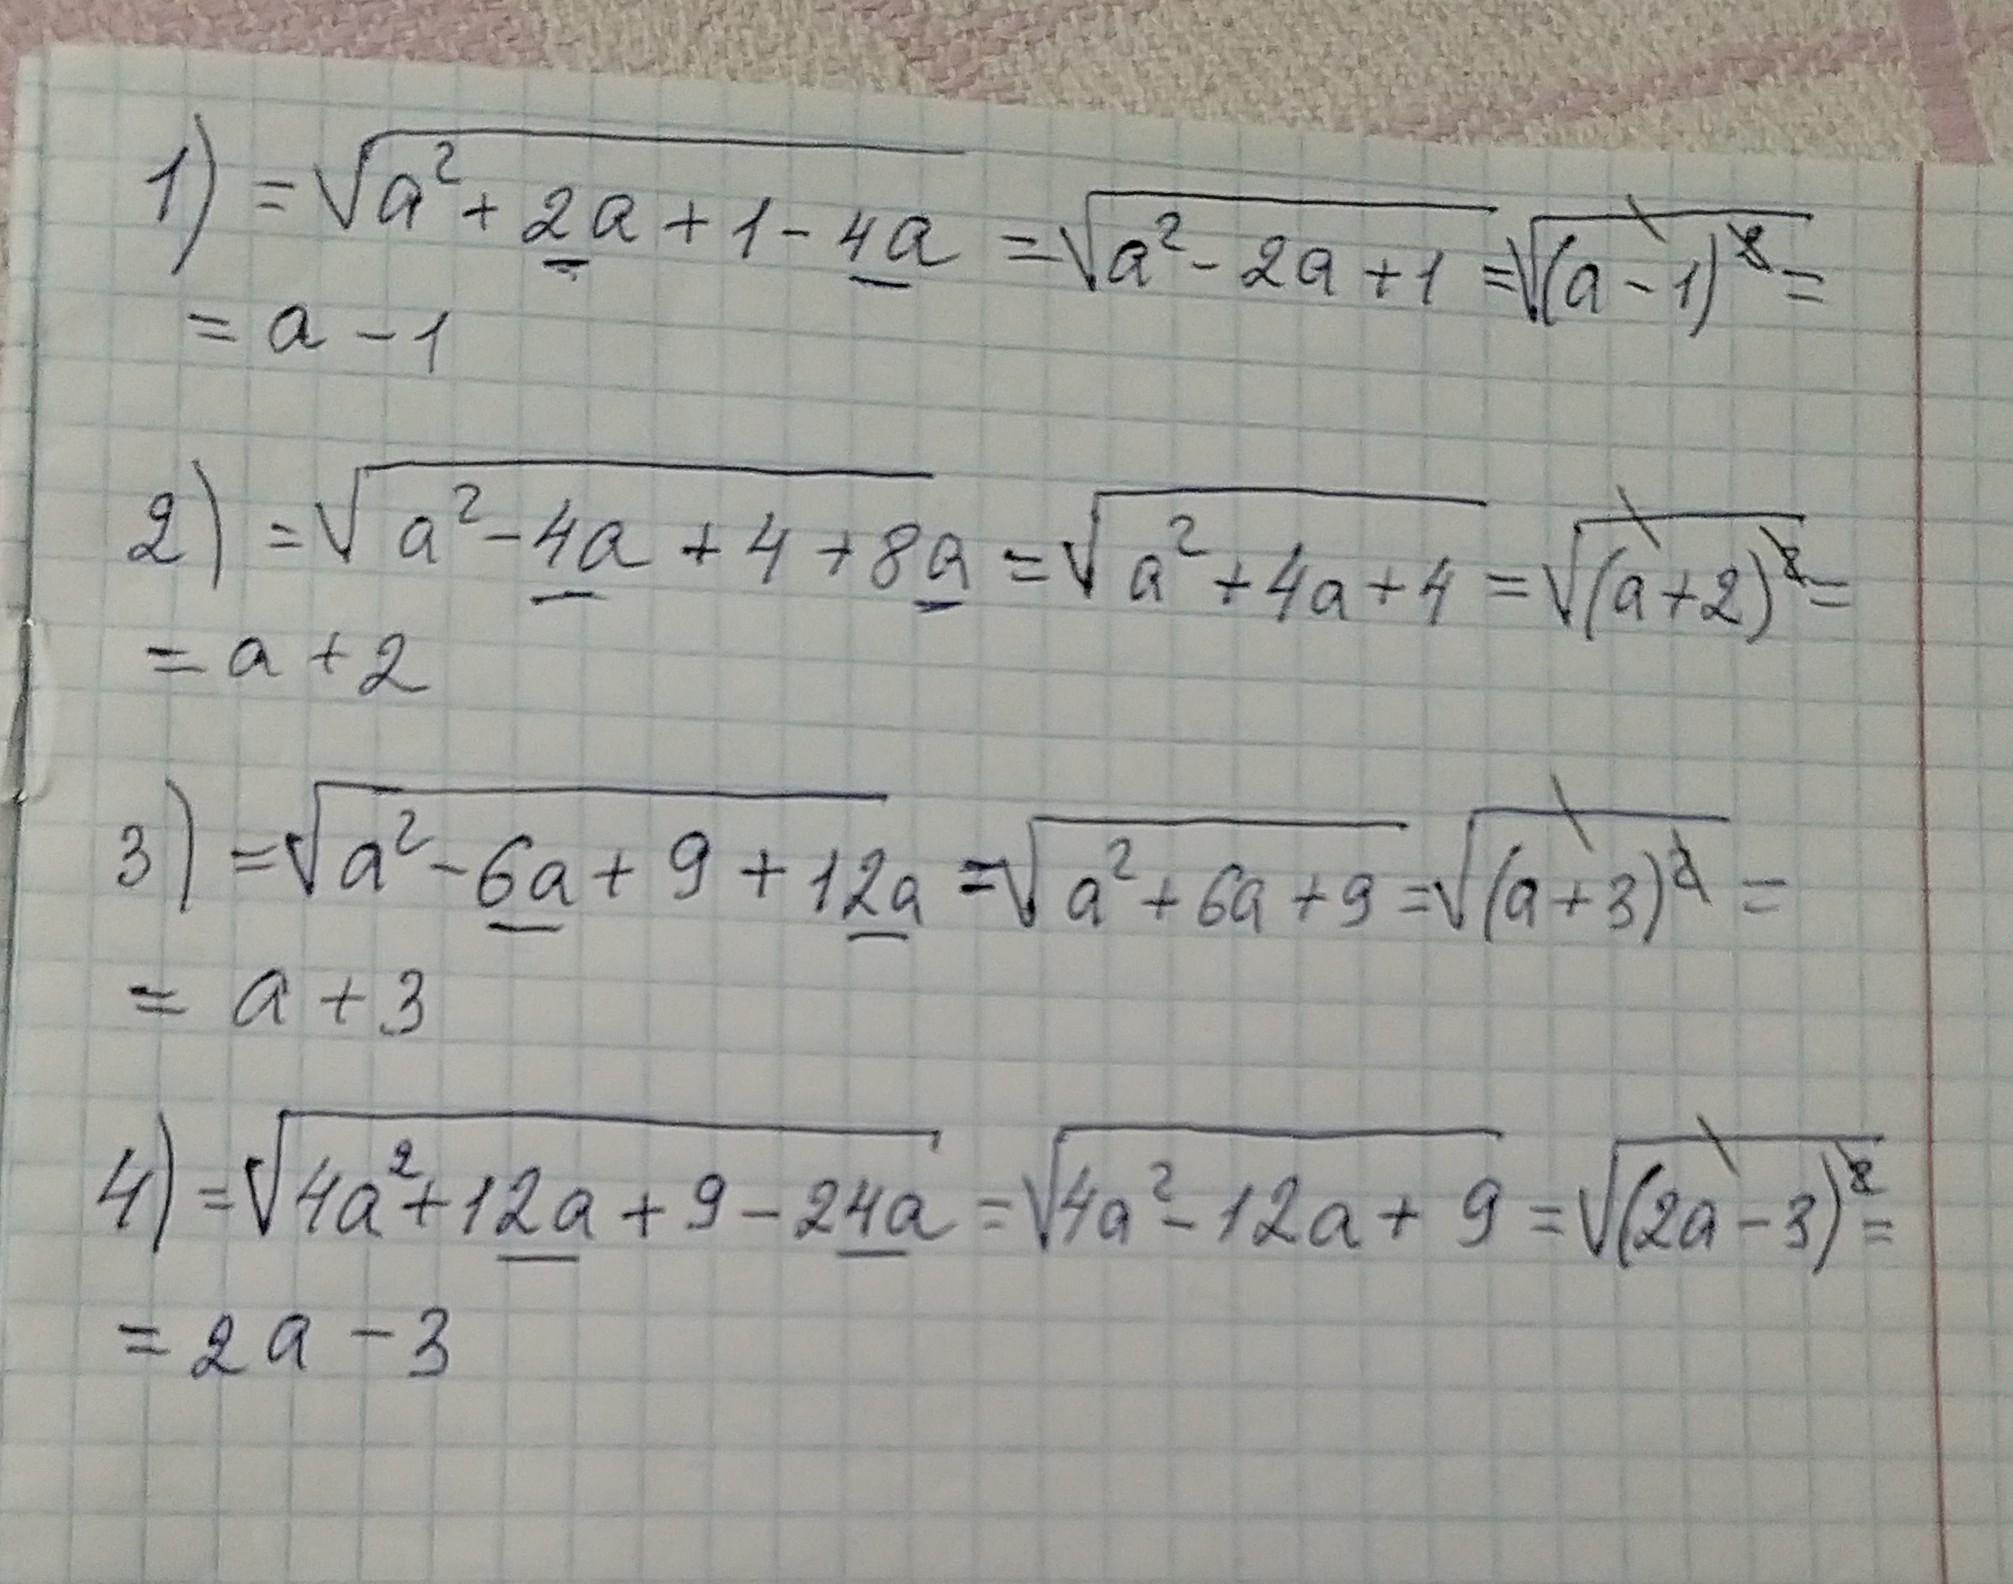 1) = √(a² + 2a + 1 - 4a) = √(a² - 2a + 1) = √((a - 1)²) =
= a - 1
2) = √(a² - 4a + 4 + 8a) = √(a² + 4a + 4) = √((a + 2)²) =
= a + 2
3) = √(a² - 6a + 9 + 12a) = √(a² + 6a + 9) = √((a + 3)²) =
= a + 3
4) = √(4a² + 12a + 9 - 24a) = √(4a² - 12a + 9) = √((2a - 3)²) =
= 2a - 3